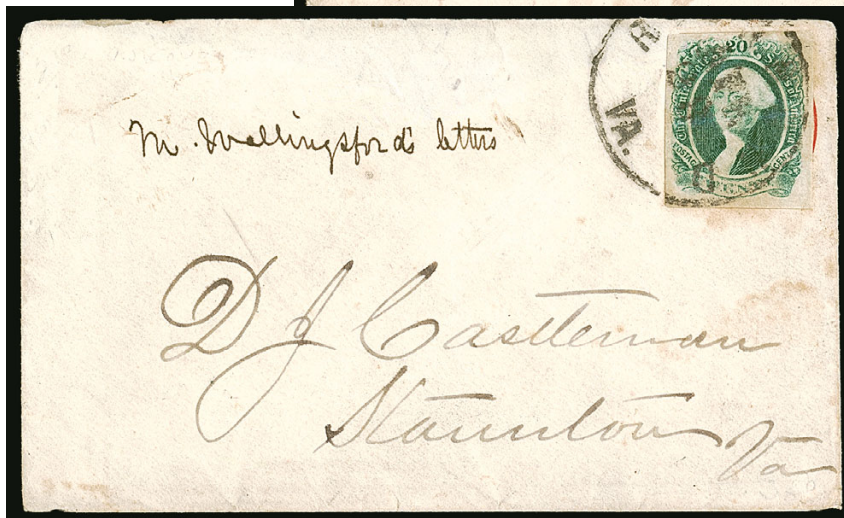 R
VA.
20
M. Wallingsford's letters
D J Castleman
Staunton
Va